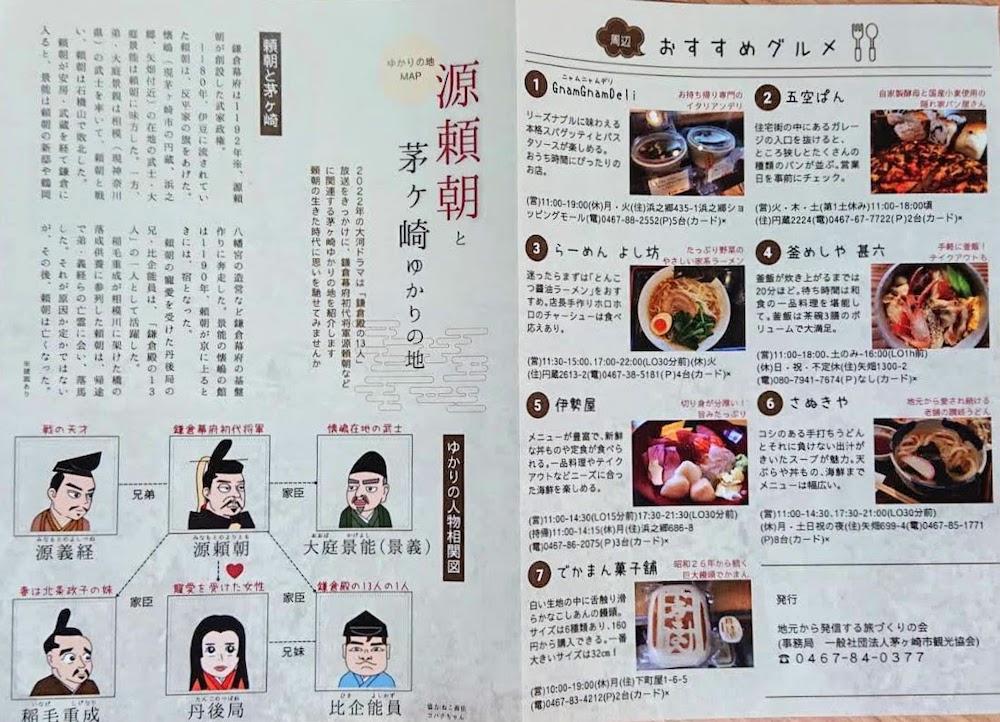 源頼朝と
茅ヶ崎ゆかりの地
ゆかりの地
MAP
2022年の大河ドラマは「鎌倉殿の13人」
放送をきっかけに、鎌倉幕府初代将軍源頼朝など
に関連する茅ヶ崎ゆかりの地を紹介します
頼朝の生きた時代に思いを馳せてみませんか
頼朝と茅ヶ崎
鎌倉幕府は1192年※、源頼
朝が創設した武家政権。
1180年、伊豆に流されてい
た頼朝は、反平家の旗をあげた。
懐嶋（現茅ヶ崎市の円蔵、浜之
郷、矢畑付近）の在地の武士・大
庭景能は頼朝に味方した。一方、
弟・大庭景親は相模（現神奈川
県）の武士を率いて、頼朝と戦
い、頼朝は石橋山で敗北した。
頼朝が安房・武蔵を経て鎌倉に
入ると、景能は頼朝の新邸や鶴岡
八幡宮の造営など鎌倉幕府の基盤
作りに奔走した。景能の懐嶋の館
は1190年、頼朝が京に上ると
きには、宿となった。
頼朝の寵愛を受けた丹後局の
兄・比企能員は、「鎌倉殿の13
人」の一人として活躍した。
稲毛重成が相模川に架けた橋の
落成供養に参列した頼朝は、帰途
で弟・義経らの亡霊に会い、落馬
した。それが原因か定かではない
が、その後、頼朝は亡くなった。
※諸説あり
ゆかりの人物相関図
戦の天才
みなもとのよしつね
源義経
兄弟
鎌倉幕府初代将軍
みなもとのよりとも
源頼朝
家臣
懐嶋在地の武士
おおば かげよし
大庭景能(景義)
妻は北条政子の妹
いなげ しげなり
稲毛重成
家臣
寵愛を受けた女性
たんごのつぼね
丹後局
家臣
兄妹
鎌倉殿の13人の1人
ひき よしかず
比企能員
周辺
おすすめグルメ
1 ニャムニャムデリ
GnamGnamDeli
お持ち帰り専門の
イタリアンデリ
リーズナブルに味わえる
本格スパゲッティとパス
タソースが楽しめる。
おうち時間にぴったりの
お店。
(営)11:00-19:00(休)月・火(住)浜之郷435-1浜之郷ショ
ッピングモール(電)0467-88-2552(P)5台(カード)×
2 五空ぱん
自家製酵母と国産小麦使用の
隠れ家パン屋さん
住宅街の中にあるガレー
ジの入口を抜けると、
ところ狭しとたくさんの
種類のパンが並ぶ。営業
日を事前にチェック。
(営)火・木・土(第1土休み)11:00-18:00頃
(住)円蔵2224(電)0467-67-7722(P)2台(カード)×
3 らーめん よし坊
たっぷり野菜の
やさしい家系ラーメン
迷ったらまずは「とんこ
つ醤油ラーメン」をおす
すめ。店長手作りホロホロ
のチャーシューは食べ
応えあり。
(営)11:30-15:00、17:00-22:00(LO30分前)(休)火
(住)円蔵2613-2(電)0467-38-5181(P)4台(カード)×
4 釜めしや 甚六
手軽に釜飯！
テイクアウトも
釜飯が炊き上がるまでは
20分ほど。待ち時間は和
食の一品料理を堪能し
て。釜飯は茶碗3膳のボ
リュームで大満足。
(営)11:00-18:00、土のみ-16:00(LO1h前)
(休)日・祝・不定休(住)矢畑1300-2
(電)080-7941-7674(P)なし(カード)×
5 伊勢屋
切り身が分厚い！
旨みたっぷり
メニューが豊富で、新鮮
な丼ものや定食が食べら
れる。一品料理やテイク
アウトなどニーズに合っ
た海鮮を楽しめる。
(営)11:00-14:30(LO15分前)17:30-21:30(LO30分前)
(持帰)11:00-14:15(休)月(住)浜之郷686-8
(電)0467-86-2075(P)3台(カード)×
6 さぬきや
地元から愛され続ける
老舗の讃岐うどん
コシのある手打ちうどん
とそれに負けない出汁が
きいたスープが魅力。天
ぷらや丼もの、海鮮まで
メニューは幅広い。
(営)11:00-14:30、17:30-21:00(LO30分前)
(休)月・土日祝の夜(住)矢畑699-4(電)0467-85-1771
(P)8台(カード)×
7 でかまん菓子舗
昭和26年から続く
巨大饅頭でかまん
白い生地の中に舌触り滑
らかなこしあんの饅頭。
サイズは6種類あり、160
円から購入できる。一番
大きいサイズは32cm！
(営)10:00-19:00(休)月(住)下町屋1-6-5
(電)0467-83-4212(P)2台(カード)×
発行
地元から発信する旅づくりの会
(事務局 一般社団法人茅ヶ崎市観光協会)
☎0467-84-0377